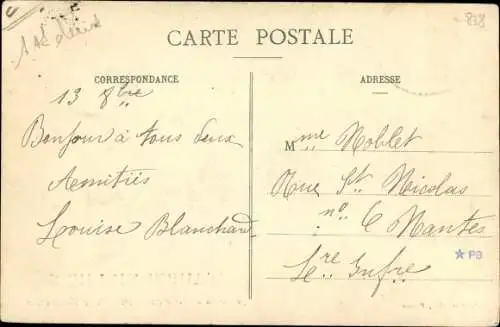 838
CARTE POSTALE
CORRESPONDANCE
ADRESSE
13 8bre
Bonjour à tous deux
Amitiés
Louise Blanchard
Mme Noblet
Rue St Nicolas
no 6 Nantes
Lre Infre
PB